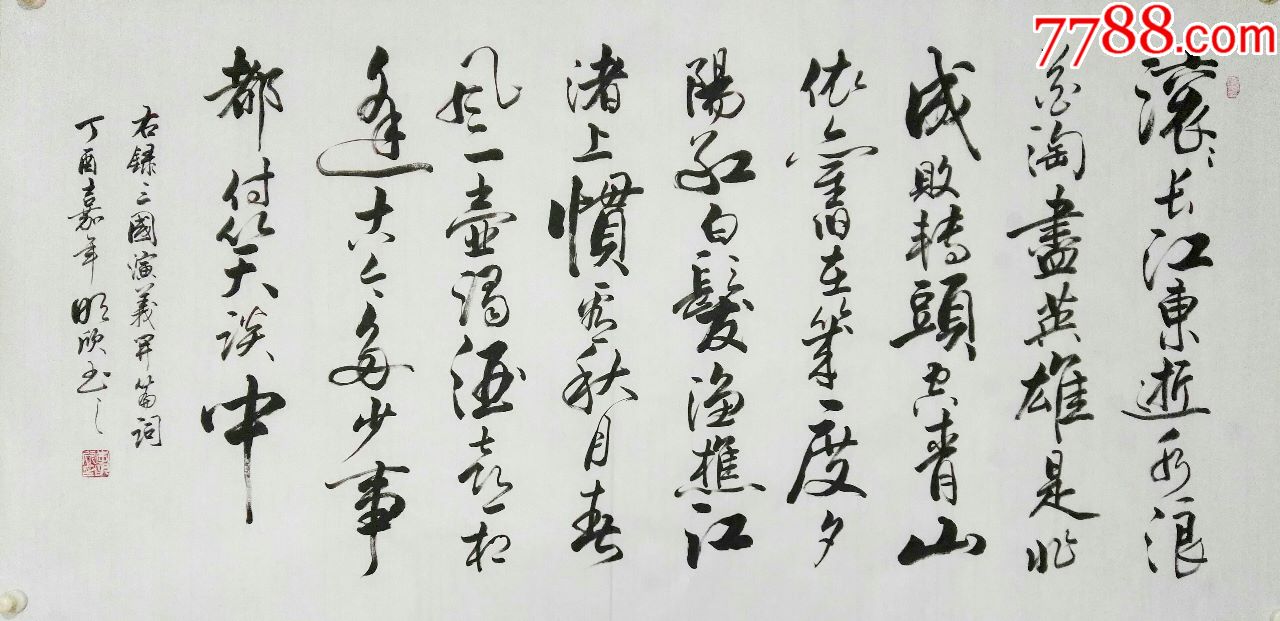 7788.com
滾〻长江東逝水浪
花淘盡英雄是非
成敗轉頭空青山
依舊在幾度夕
陽紅白髮渔樵江
渚上慣看秋月春
风一壶濁酒喜相
逢古今多少事
都付笑談中
右録三國演義開篇词
丁酉嘉年明欣书之